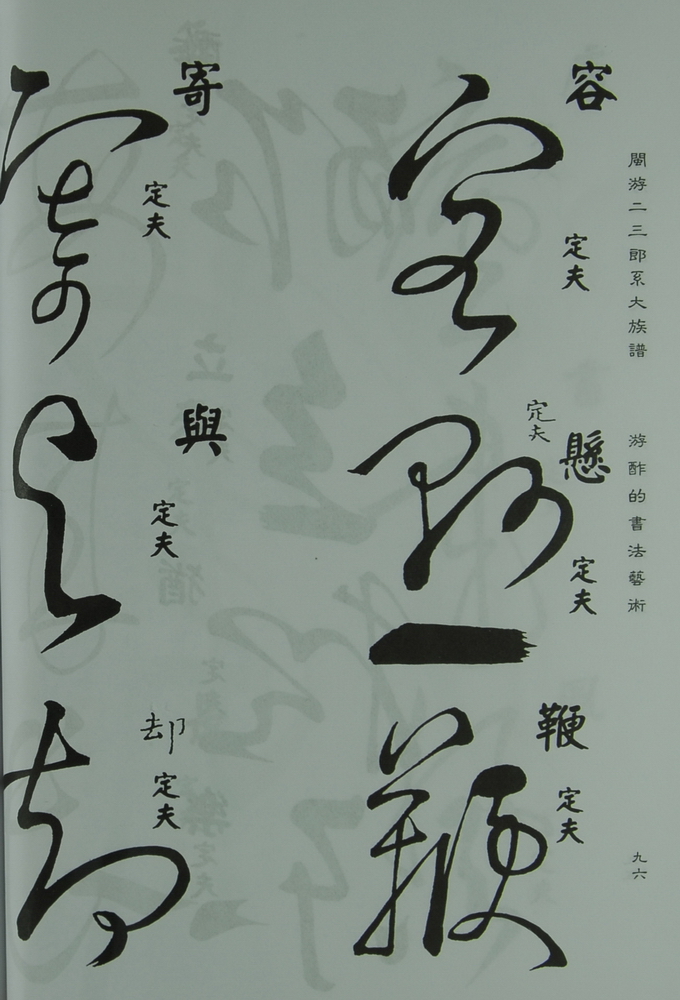 閩游二三郎系大族譜
游酢的書法藝術
九六
容
定夫
定夫
懸
定夫
鞭
定夫
寄
定夫
與
定夫
却
定夫